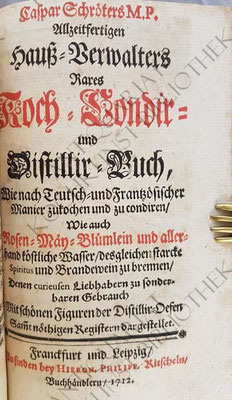 Caspar Schröters M.P.
Allzeitfertigen
Hauß-Verwalters
Rares
Koch-Condir-
und
Distillir-Buch,
Wie nach Teutsch-und Frantzösischer
Manier zukochen und zu condiren/
Wie auch
Rosen-Mäy-Blümlein und aller-
hand köstliche Wasser/desgleichen starcke
Spiritus und Brandewein zu brennen/
Denen curieusen Liebhabern zu sonder-
baren Gebrauch
Mit schönen Figuren der Distillir-Oefen
Samt nöthigen Registern dargestellet.
Franckfurt und Leipzig/
Zu finden bey HIERON. PHILIPP. Ritscheln/
Buchhändlern/1712.